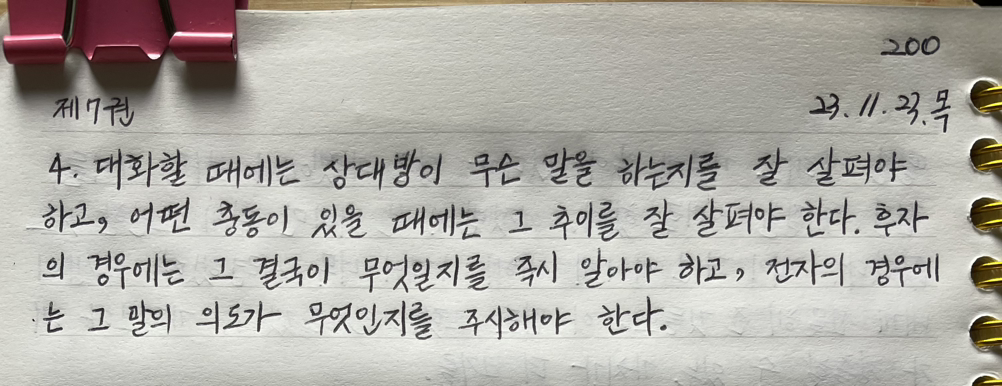 200
제7권
23.11.23.목
4. 대화할 때에는 상대방이 무슨 말을 하는지를 잘 살펴야
하고, 어떤 충동이 있을 때에는 그 추이를 잘 살펴야 한다. 후자
의 경우에는 그 결국이 무엇일지를 즉시 알아야 하고, 전자의 경우에
는 그 말의 의도가 무엇인지를 주시해야 한다.